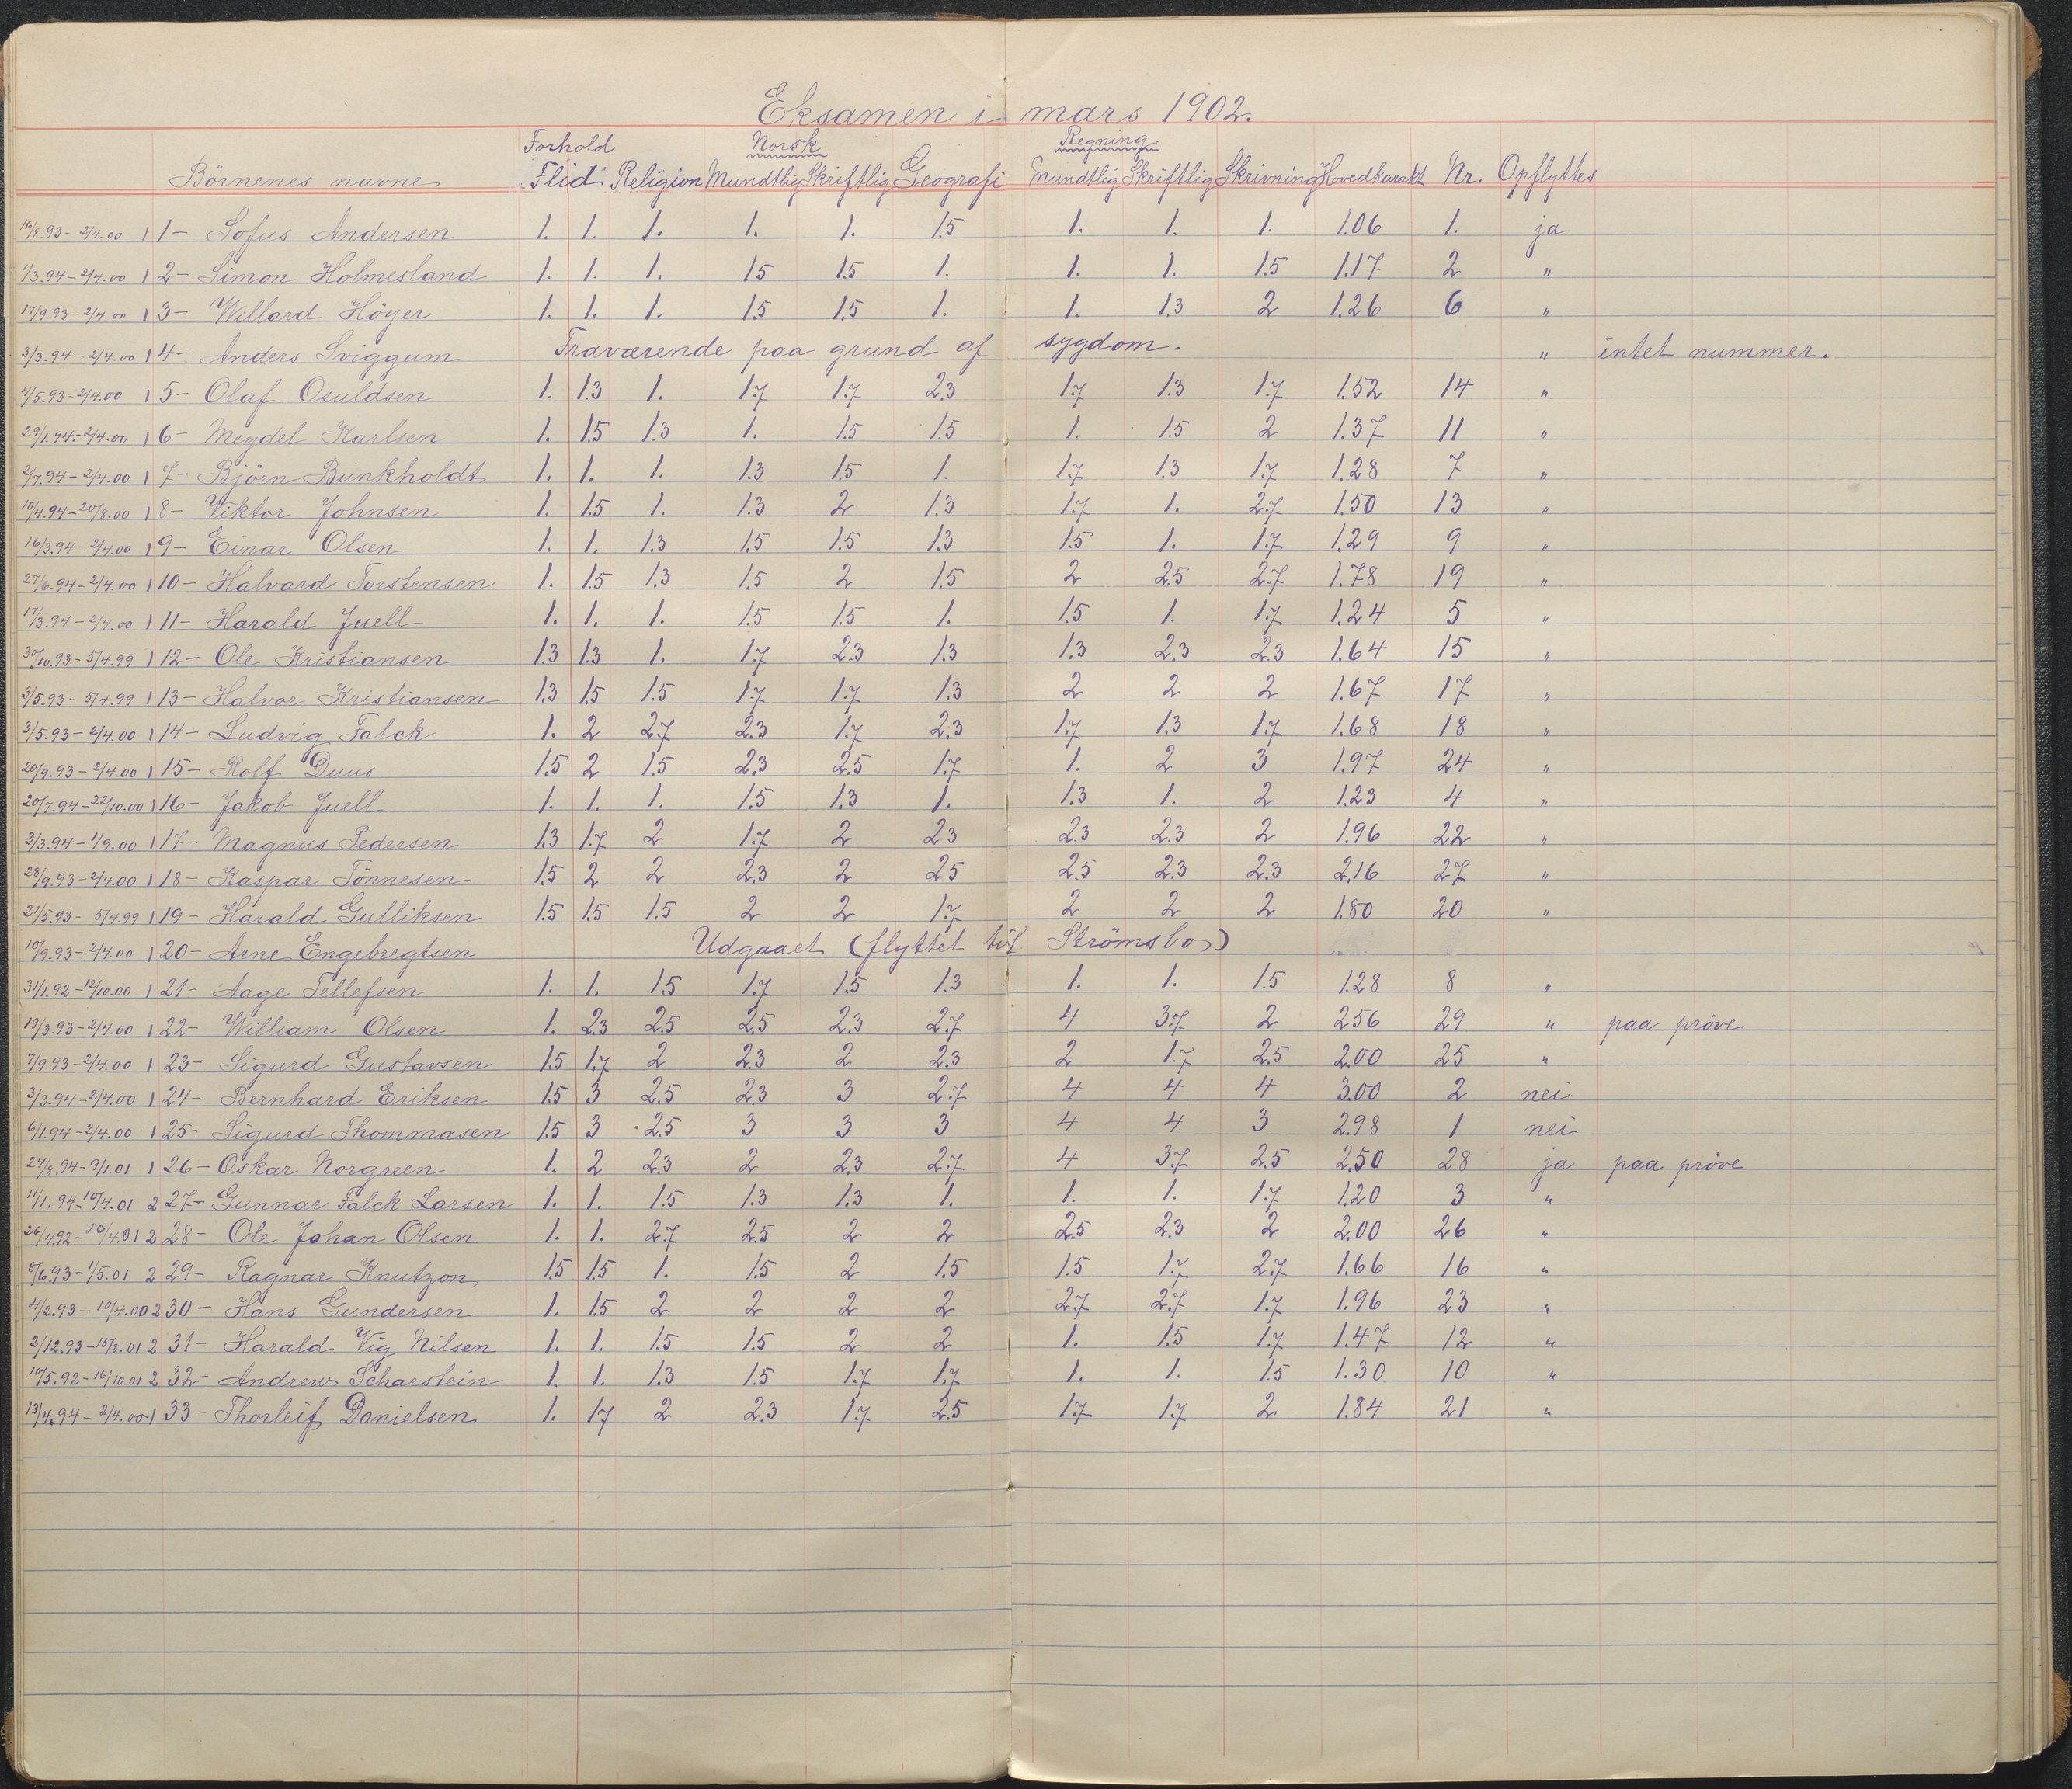 Eksamen i mars 1902.
Forhold Norsk Regning
Börnenes navne Flid Religion Mundtlig Skriftlig Geografi Mundtlig Skriftlig Skrivning Hovedkarakt Nr. Opflyttes
16/8.93 - 2/4.00 1 1 - Sofus Andersen 1. 1. 1. 1. 1. 1.5 1. 1. 1. 1.06 1. ja
1/3.94 - 2/4.00 1 2 - Simon Holmesland 1. 1. 1. 1.5 1.5 1. 1. 1. 1.5 1.17 2 "
17/9.93 - 2/4.00 1 3 - Willard Höyer 1. 1. 1. 1.5 1.5 1. 1. 1.3 2 1.26 6 "
3/3.94 - 2/4.00 1 4 - Anders Sviggum Fraværende paa grund af sygdom. " intet nummer.
4/5.93 - 2/4.00 1 5 - Olaf Osuldsen 1. 1.3 1. 1.7 1.7 2.3 1.7 1.3 1.7 1.52 14 "
29/1.94 - 2/4.00 1 6 - Meydel Karlsen 1. 1.5 1.3 1. 1.5 1.5 1. 1.5 2 1.37 11 "
2/7.94 - 2/4.00 1 7 - Björn Bunkholdt 1. 1. 1. 1.3 1.5 1. 1.7 1.3 1.7 1.28 7 "
10/4.94 - 20/8.00 1 8 - Viktor Johnsen 1. 1.5 1. 1.3 2 1.3 1.7 1. 2.7 1.50 13 "
16/3.94 - 2/4.00 1 9 - Einar Olsen 1. 1. 1.3 1.5 1.5 1.3 1.5 1. 1.7 1.29 9 "
27/6.94 - 2/4.00 1 10 - Halvard Torstensen 1. 1.5 1.3 1.5 2 1.5 2 2.5 2.7 1.78 19 "
17/3.94 - 2/4.00 1 11 - Harald Juell 1. 1. 1. 1.5 1.5 1. 1.5 1. 1.7 1.24 5 "
30/10.93 - 5/4.99 1 12 - Ole Kristiansen 1.3 1.3 1. 1.7 2.3 1.3 1.3 2.3 2.3 1.64 15 "
3/5.93 - 5/4.99 1 13 - Halvor Kristiansen 1.3 1.5 1.5 1.7 1.7 1.3 2 2 2 1.67 17 "
3/5.93 - 2/4.00 1 14 - Ludvig Falck 1. 2 2.7 2.3 1.7 2.3 1.7 1.3 1.7 1.68 18 "
20/9.93 - 2/4.00 1 15 - Rolf Duus 1.5 2 1.5 2.3 2.5 1.7 1. 2 3 1.97 24 "
20/7.94 - 22/10.00 1 16 - Jakob Juell 1. 1. 1. 1.5 1.3 1. 1.3 1. 2 1.23 4 "
3/3.94 - 1/9.00 1 17 - Magnus Pedersen 1.3 1.7 2 1.7 2 2.3 2.3 2.3 2 1.96 22 "
28/9.93 - 2/4.00 1 18 - Kaspar Tönnesen 1.5 2 2 2.3 2 2.5 2.5 2.3 2.3 2.16 27 "
21/5.93 - 5/4.99 1 19 - Harald Gulliksen 1.5 1.5 1.5 2 2 1.7 2 2 2 1.80 20 "
10/9.93 - 2/4.00 1 20 - Arne Engebregtsen Udgaaet (flyttet til Strömsbo)
31/1.92 - 12/10.00 1 21 - Aage Tellefsen 1. 1. 1.5 1.7 1.5 1.3 1. 1. 1.5 1.28 8 "
19/3.93 - 2/4.00 1 22 - William Olsen 1. 2.3 2.5 2.5 2.3 2.7 4 3.7 2 2.56 29 " paa pröve
7/9.93 - 2/4.00 1 23 - Sigurd Gustavsen 1.5 1.7 2 2.3 2 2.3 2 1.7 2.5 2.00 25 "
3/3.94 - 2/4.00 1 24 - Bernhard Eriksen 1.5 3 2.5 2.3 3 2.7 4 4 4 3.00 2 nei
6/1.94 - 2/4.00 1 25 - Sigurd Thommasen 1.5 3 2.5 3 3 3 4 4 3 2.98 1 nei
24/8.94 - 9/1.01 1 26 - Oskar Norgreen 1. 2 2.3 2 2.3 2.7 4 3.7 2.5 2.50 28 ja paa pröve
11/1.94 - 10/4.01 2 27 - Gunnar Falck Larsen 1. 1. 1.5 1.3 1.3 1. 1. 1. 1.7 1.20 3 "
26/4.92 - 10/4.01 2 28 - Ole Johan Olsen 1. 1. 2.7 2.5 2 2 2.5 2.3 2 2.00 26 "
8/6.93 - 1/5.01 2 29 - Ragnar Knutzon 1.5 1.5 1. 1.5 2 1.5 1.5 1.7 2.7 1.66 16 "
4/2.93 - 10/4.00 2 30 - Hans Gundersen 1. 1.5 2 2 2 2 2.7 2.7 1.7 1.96 23 "
2/12.93 - 15/8.01 2 31 - Harald Vig Nilsen 1. 1. 1.5 1.5 2 2 1. 1.5 1.7 1.47 12 "
10/5.92 - 16/10.01 2 32 - Andrew Scharstein 1. 1. 1.3 1.5 1.7 1.7 1. 1. 1.5 1.30 10 "
13/4.94 - 2/4.00 1 33 - Thorleif Danielsen 1. 1.7 2 2.3 1.7 2.5 1.7 1.7 2 1.84 21 "